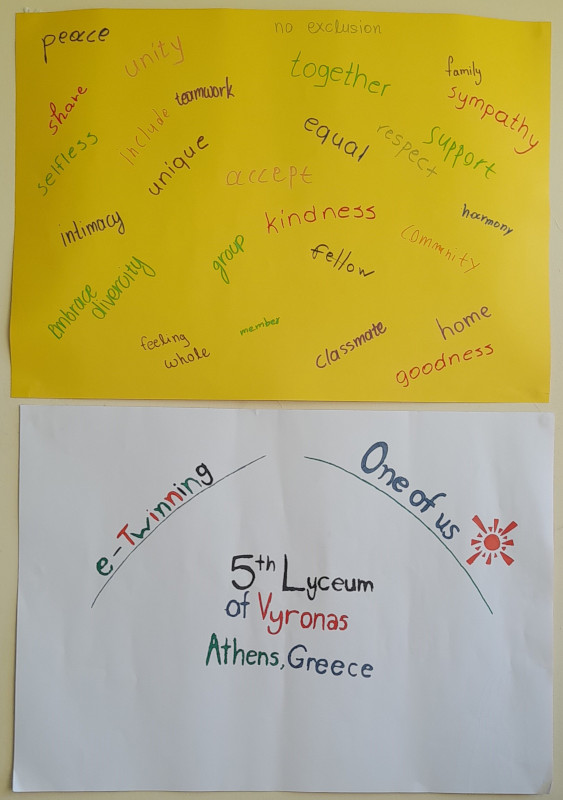 peace
no exclusion
unity
together
family
share
teamwork
sympathy
include
equal
respect
support
selfless
unique
accept
intimacy
kindness
harmony
group
fellow
community
embrace
divercity
feeling
whole
member
classmate
home
goodness
e-Twinning
One of us
5th Lyceum
of Vyronas
Athens, Greece